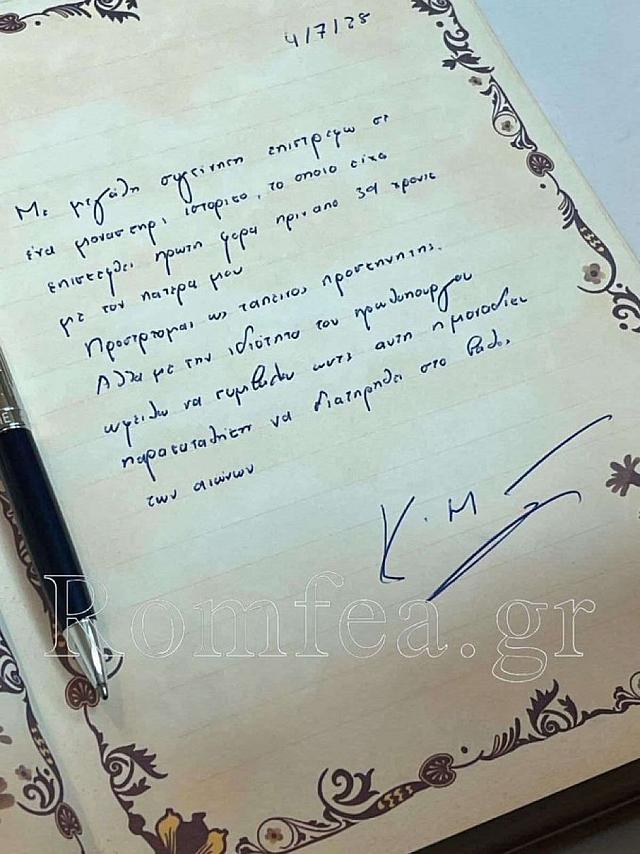 4/7/25
Με μεγάλη συγκίνηση επιστρέφω σε
ένα μοναστήρι ιστορικό, το οποίο είχα
επισκεφθεί πρώτη φορά πριν από 39 χρόνια
με τον πατέρα μου
Προσέρχομαι ως ταπεινός προσκυνητής.
Αλλά με την ιδιότητα του πρωθυπουργού
οφείλω να συμβάλω ώστε αυτή η μοναδική
παρακαταθήκη να διατηρηθεί στο βάθος
των αιώνων
Κ. Μ
Romfea.gr